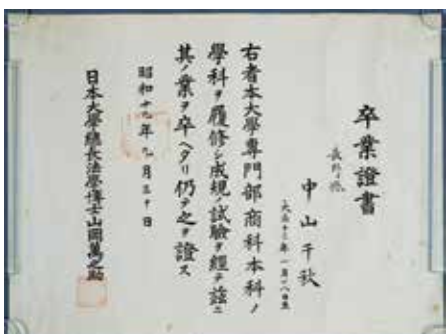 卒業證書
長野縣
中山千秋
大正十三年一月八日生
右者本大學專門部商科本科ノ
學科ヲ履修シ成規ノ試驗ヲ經テ茲ニ
其ノ業ヲ卒ヘタリ仍テ之ヲ證ス
昭和十九年九月三十日
日本大學總長法學博士山岡萬之助